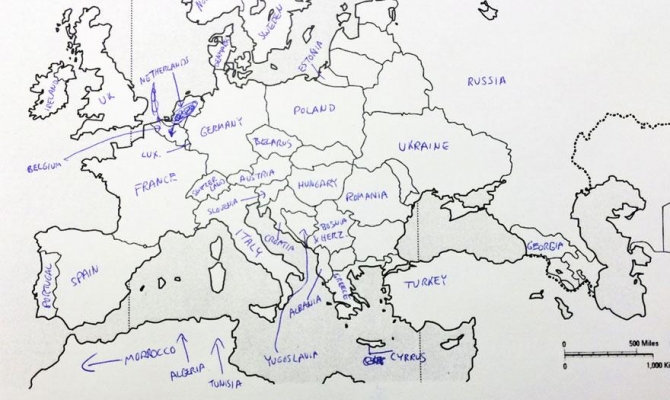 NO
SWEDEN
DENMARK
ESTONIA
RUSSIA
NETHERLANDS
IRELAND
UK
POLAND
GERMANY
BELARUS
UKRAINE
BELGIUM
LUX.
FRANCE
SWITZER
LAND
AUSTRIA
HUNGARY
ROMANIA
SLOVENIA
ITALY
CROATIA
BOSNIA
& HERZ.
GEORGIA
PORTUGAL
SPAIN
GREECE
TURKEY
ALBANIA
MORROCCO
ALGERIA
TUNISIA
YUGOSLAVIA
CYPRUS
0 500 Miles
0 1,000 Ki